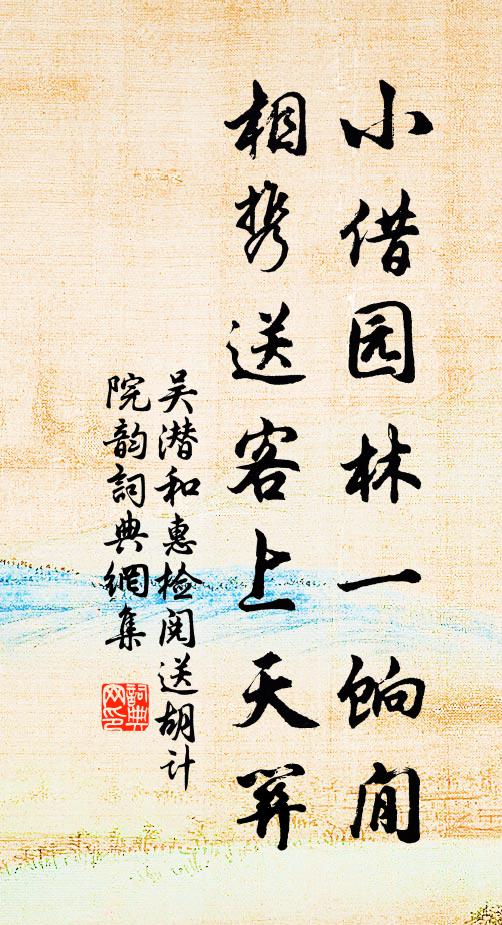 小借园林一饷閒
相携送客上天关
吴潜和惠检阅送胡计
院韵詞典網集
詞典
网印